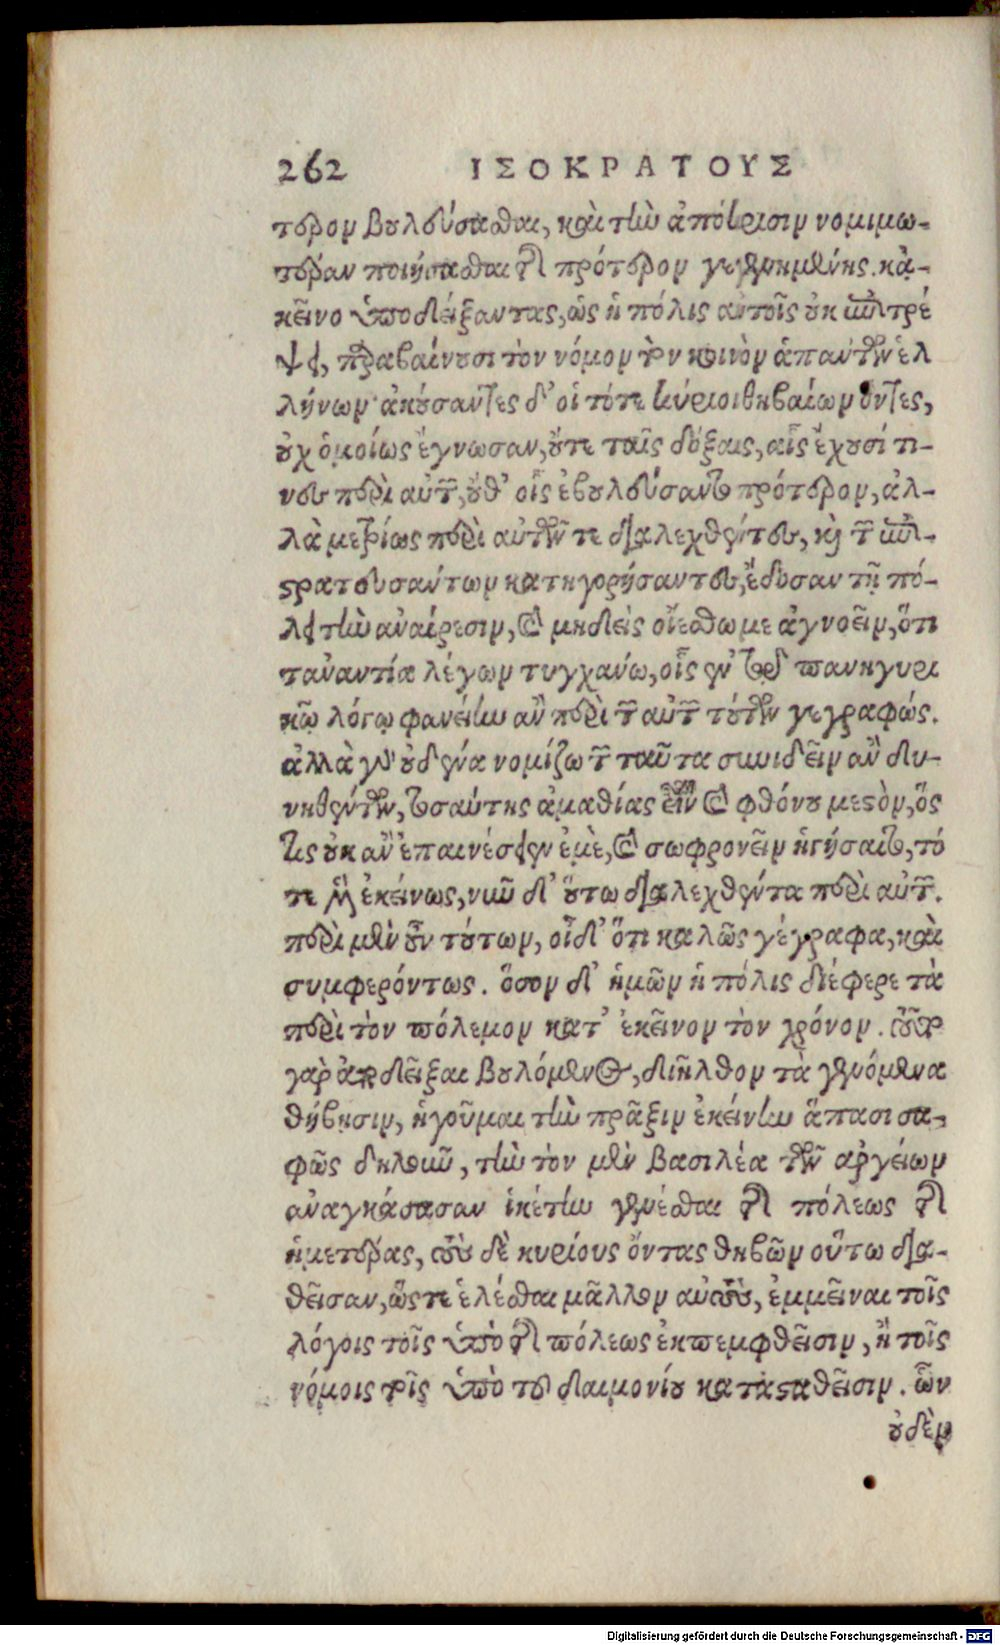 262 ΙΣΟΚΡΑΤΟΥΣ
τερον βουλεύσασθαι, καὶ τὴν ἀπόκρισιν νομιμω-
τέραν ποιήσασθαι τῆς πρότερον γεγενημένης. κἀ-
κεῖνο ὑποδείξαντας, ὡς ἡ πόλις αὐτοῖς οὐκ ἐπιτρέ
ψει, παραβαίνουσι τὸν νόμον τὸν κοινὸν ἁπάντων ἑλ
λήνων· ἀκούσαντες δ' οἱ τότε κύριοι θηβαίων ὄντες,
οὐχ ὁμοίως ἔγνωσαν, οὔτε ταῖς δόξαις, αἷς ἔχουσί τι-
νες περὶ αὐτῶν, οὔθ' οἷς ἐβουλεύσαντο πρότερον, ἀλ-
λὰ μετρίως περὶ αὑτῶν τε διαλεχθέντες, καὶ τῶν ἐπι-
στρατευσάντων κατηγορήσαντες, ἔδοσαν τῇ πό-
λει τὴν ἀναίρεσιν, καὶ μηδεὶς οἰέσθω με ἀγνοεῖν, ὅτι
τἀναντία λέγων τυγχάνω, οἷς ἐν τῷ πανηγυρι
κῷ λόγῳ φανείην ἂν περὶ τῶν αὐτῶν τούτων γεγραφώς.
ἀλλὰ γὰρ οὐδένα νομίζω τῶν ταῦτα συνιδεῖν ἂν δυ-
νηθέντων, τοσαύτης ἀμαθίας εἶναι καὶ φθόνου μεστὸν, ὅς
τις οὐκ ἂν ἐπαινέσειεν ἐμὲ, καὶ σωφρονεῖν ἡγήσαιτο, τό
τε μὲν ἐκείνως, νῦν δ' οὕτω διαλεχθέντα περὶ αὐτῶν.
περὶ μὲν οὖν τούτων, οἶδ' ὅτι καλῶς γέγραφα, καὶ
συμφερόντως. ὅσον δ' ἡμῶν ἡ πόλις διέφερε τὰ
περὶ τὸν πόλεμον κατ' ἐκεῖνον τὸν χρόνον. τοῦτο
γὰρ ἀποδεῖξαι βουλόμενος, διῆλθον τὰ γενόμενα
θήβησιν, ἡγοῦμαι τὴν πρᾶξιν ἐκείνην ἅπασι σα-
φῶς δηλοῦν, τὴν τὸν μὲν βασιλέα τῶν ἀργείων
ἀναγκάσασαν ἱκέτην γενέσθαι τῆς πόλεως τῆς
ἡμετέρας, τοὺς δὲ κυρίους ὄντας θηβῶν οὕτω δια-
θεῖσαν, ὥστε ἑλέσθαι μᾶλλον αὐτοὺς, ἐμμεῖναι τοῖς
λόγοις τοῖς ὑπὸ τῆς πόλεως ἐκπεμφθεῖσιν, ἢ τοῖς
νόμοις τοῖς ὑπὸ τοῦ δαιμονίου κατασταθεῖσιν. ὧν
οὐδὲν
Digitalisierung gefördert durch die Deutsche Forschungsgemeinschaft - DFG